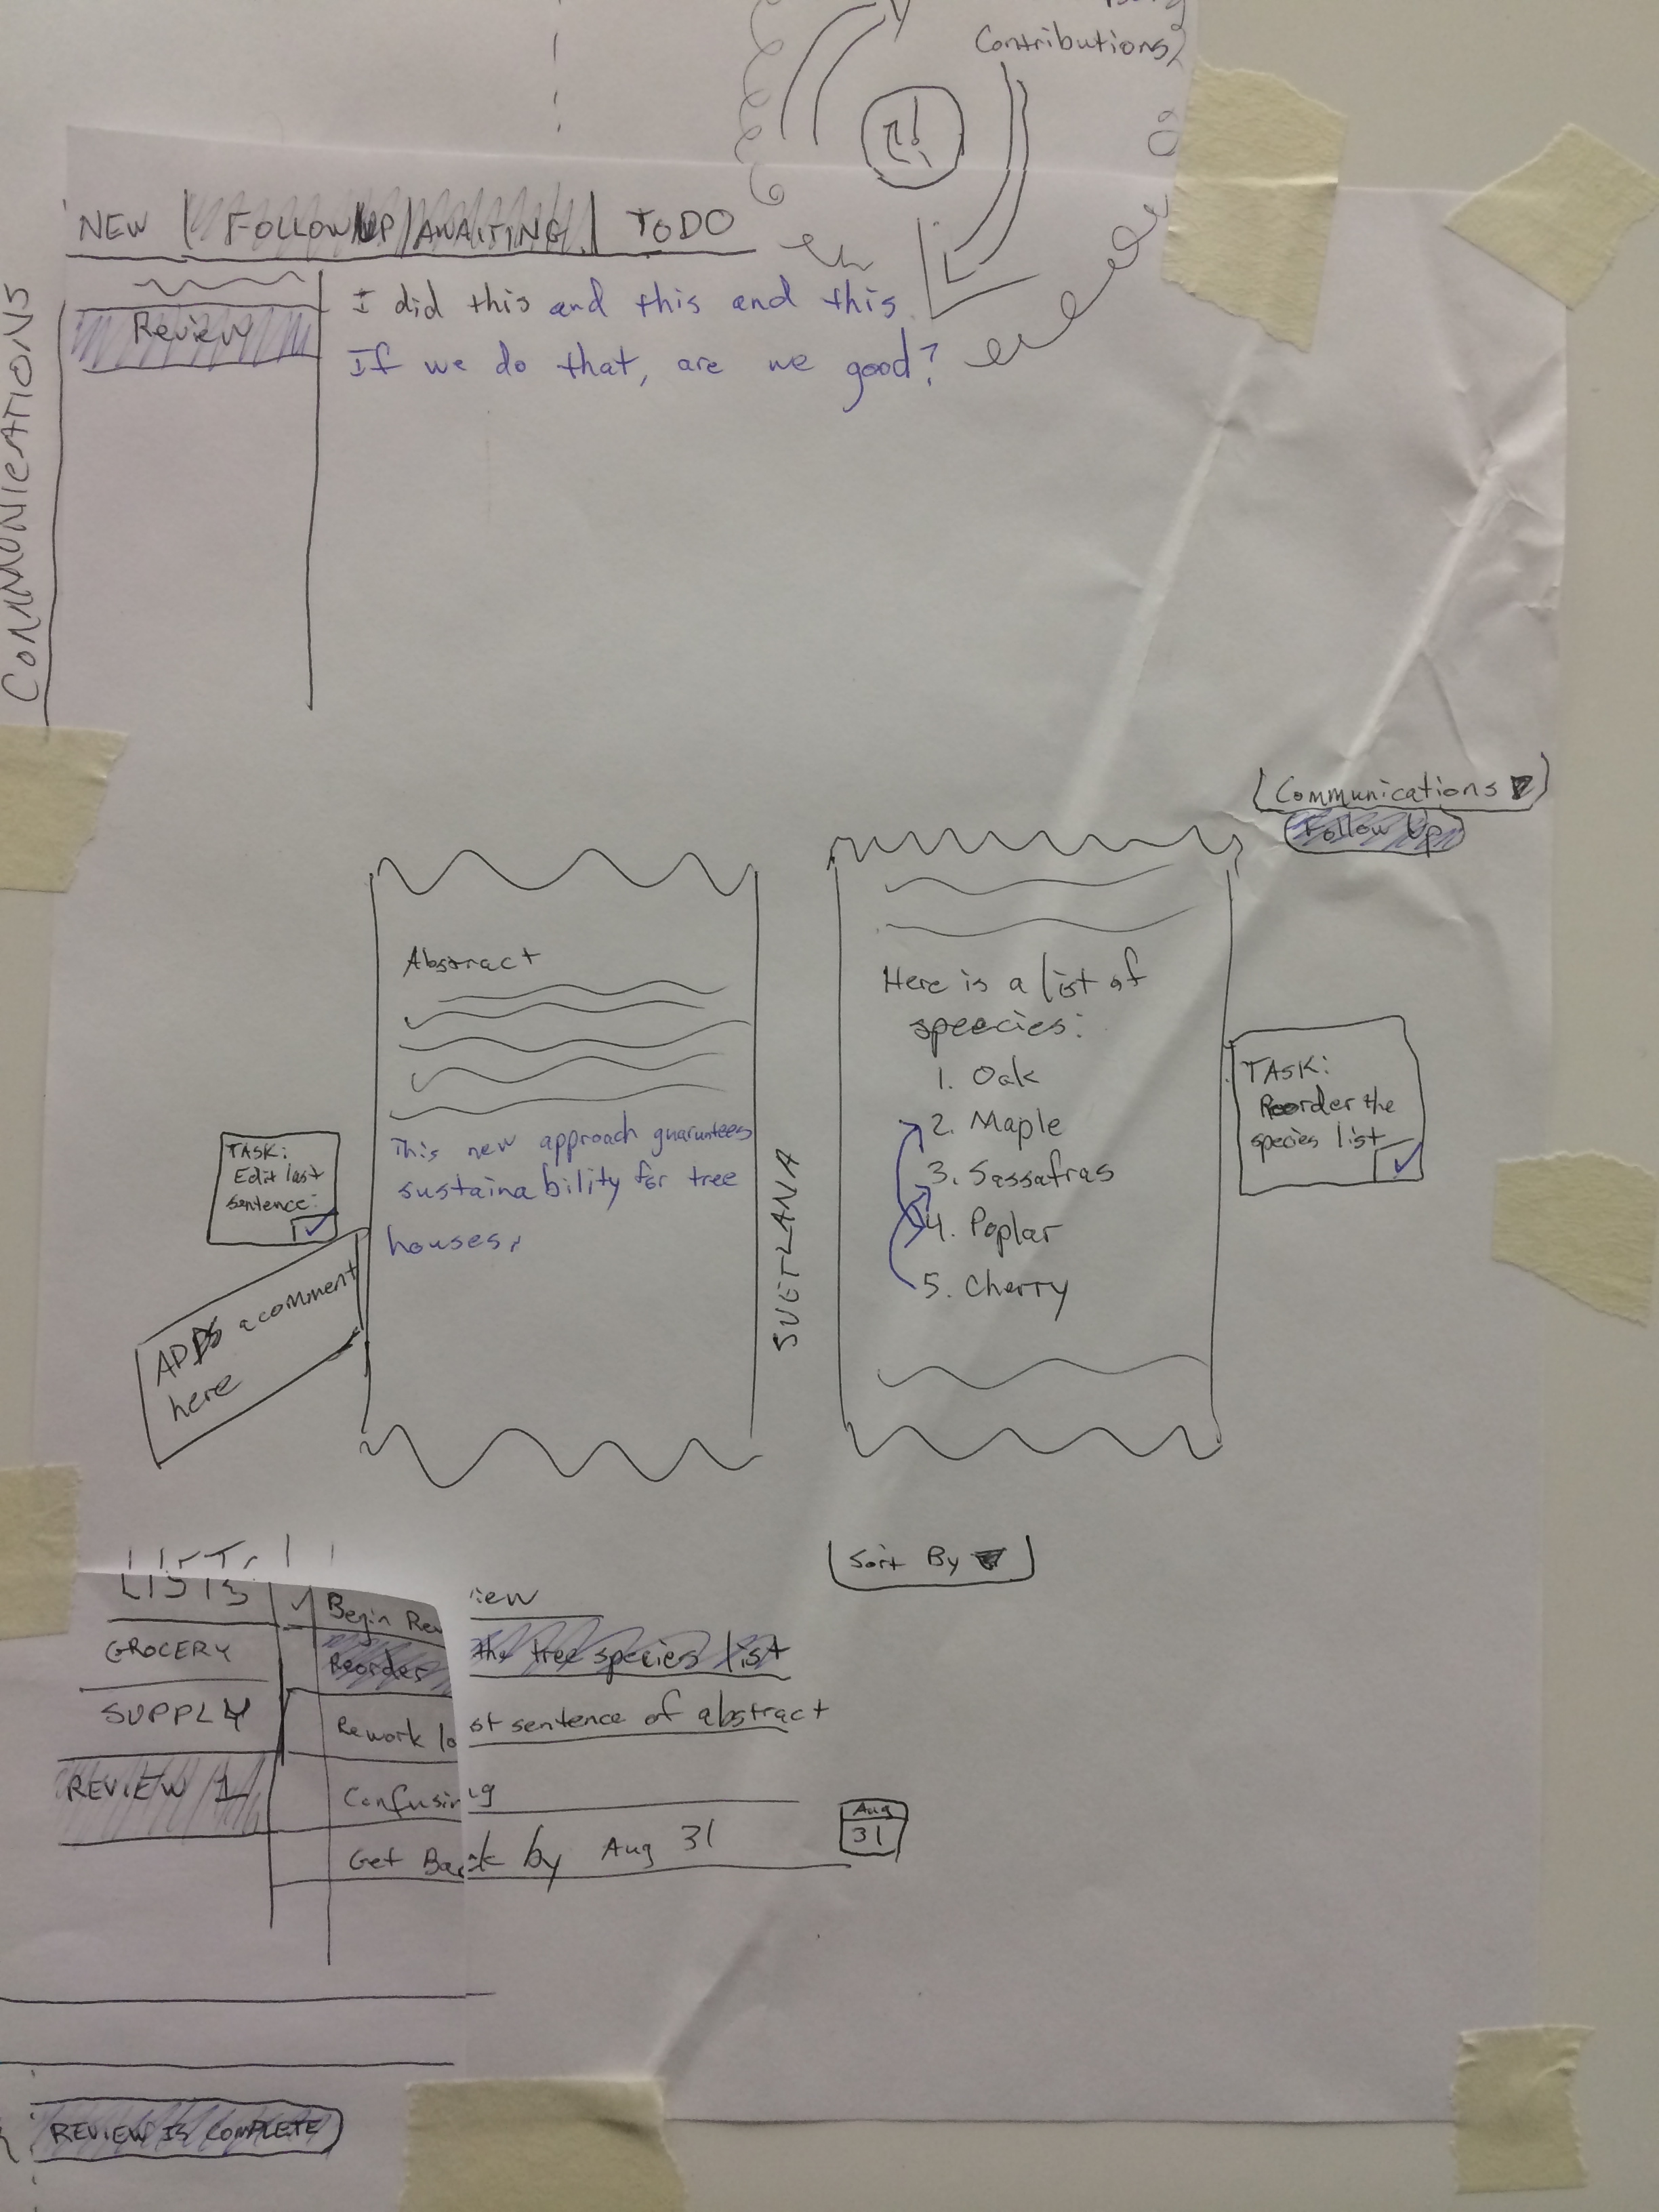 Contributions
NEW | FOLLOW UP | AWAITING | TODO
COMMUNICATIONS
Review
I did this and this and this.
If we do that, are we good?
Communications
Follow Up
Abstract
This new approach guaruntees
sustainability for tree
houses.
TASK:
Edit last
sentence:
ADDS a comment
here
SVETLANA
Here is a list of
speecies:
1. Oak
2. Maple
3. Sassafras
4. Poplar
5. Cherry
TASK:
Reorder the
species list
Sort By
LISTS
GROCERY
SUPPLY
REVIEW 1
Begin Review
Reorder the tree species list
Rework last sentence of abstract
Confusing
Get Back by Aug 31
Aug
31
REVIEW IS COMPLETE